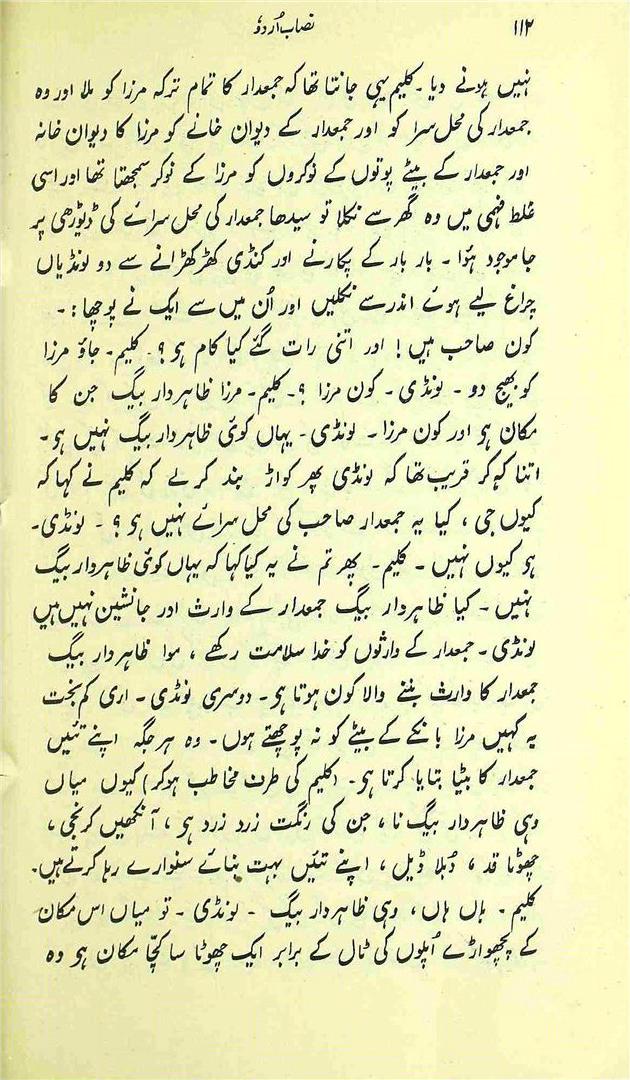 نصاب اُردو ۱۱۲
نہیں ہونے دیا۔ کلیم یہی جانتا تھا کہ جمعدار کا تمام ترکہ مرزا کو ملا اور وہ
جمعدار کی محل سرا کو اور جمعدار کے دیوان خانے کو مرزا کا دیوان خانہ
اور جمعدار کے بیٹے پوتوں کے نوکروں کو مرزا کے نوکر سمجھتا تھا اور اسی
غلط فہمی میں وہ گھر سے نکلا تو سیدھا جمعدار کی محل سرائے کی ڈیوڑھی پر
جا موجود ہؤا ۔ بار بار کے پکارنے اور کنڈی کھڑکھڑانے سے دو لونڈیاں
چراغ لیے ہوئے اندر سے نکلیں اور اُن میں سے ایک نے پوچھا :۔
کون صاحب ہیں! اور اتنی رات گئے کیا کام ہو ؟۔ کلیم۔ جاؤ مرزا
کو بھیج دو ۔ لونڈی ۔ کون مرزا ؟۔ کلیم۔ مرزا ظاہر دار بیگ جن کا
مکان ہو اور کون مرزا ۔ لونڈی۔ یہاں کوئی ظاہر دار بیگ نہیں ہو ۔
اتنا کہہ کر قریب تھا کہ لونڈی پھر کواڑ بند کر لے کہ کلیم نے کہا کہ
کیوں جی ، کیا یہ جمعدار صاحب کی محل سرائے نہیں ہو ؟ ۔ لونڈی۔
ہو کیوں نہیں ۔ کلیم۔ پھر تم نے یہ کیا کہا کہ یہاں کوئی ظاہر دار بیگ
نہیں ۔ کیا ظاہر دار بیگ جمعدار کے وارث اور جانشین نہیں ہیں
لونڈی ۔ جمعدار کے وارثوں کو خدا سلامت رکھے ، موا ظاہر دار بیگ
جمعدار کا وارث بننے والا کون ہوتا ہو ۔ دوسری لونڈی ۔ اری کم بخت
یہ کہیں مرزا بانکے کے بیٹے کو نہ پوچھتے ہوں ۔ وہ ہر جگہ اپنے تئیں
جمعدار کا بیٹا بتایا کرتا ہو ۔ (کلیم کی طرف مخاطب ہو کر) کیوں میاں
وہی ظاہر دار بیگ نا ، جن کی رنگت زرد زرد ہو ، آنکھیں کرنجی ،
چھوٹا قد ، دُبلا ڈیل ، اپنے تئیں بہت بنائے سنوارے رہا کرتے ہیں۔
کلیم ۔ ہاں ہاں ، وہی ظاہر دار بیگ ۔ لونڈی ۔ تو میاں اس مکان
کے پچھواڑے اُپلوں کی ٹال کے برابر ایک چھوٹا سا کچّا مکان ہو وہ